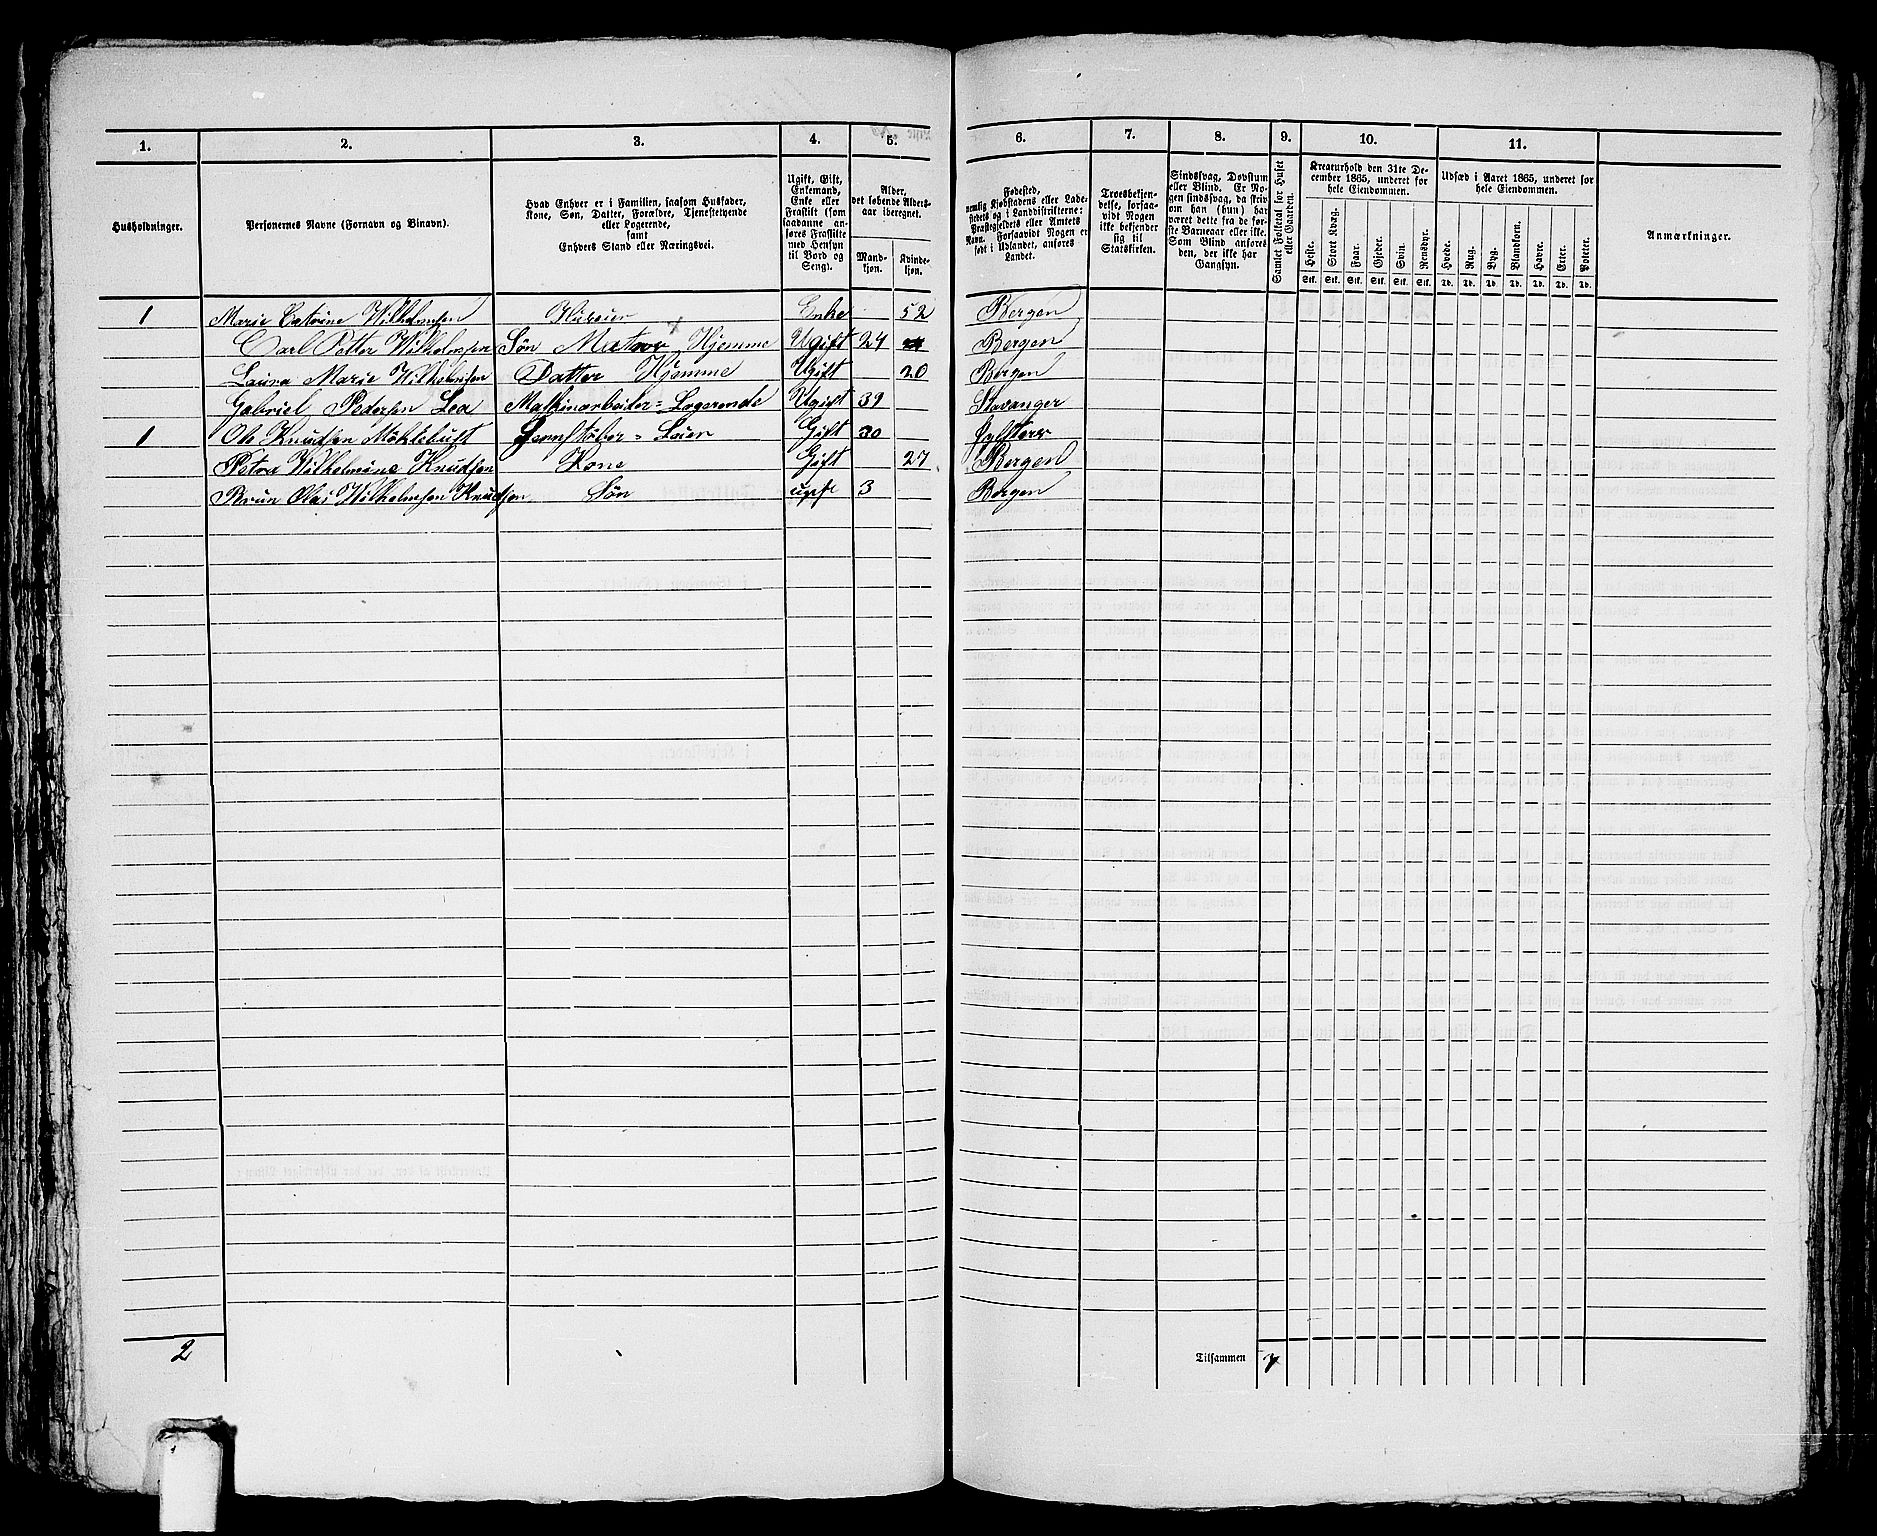 1. 2. 3. 4. 5. 6. 7. 8. 9. 10. 11.
Husholdninger.
Personernes Navne (Fornavn og Binavn).
Hvad Enhver er i Familien, saasom Husfader,
Kone, Søn, Datter, Forældre, Tjenestetyende
eller Logerende,
samt
Enhvers Stand eller Næringsvei.
Ugift, Gift,
Enkemand,
Enke eller
Fraskilt (som
saadanne an-
føres Fraskilte
med Hensyn
til Bord og
Seng).
Alder,
det løbende Alders-
aar iberegnet.
Mand-
kjøn.
Kvinde-
kjøn.
Fødested,
nemlig Kjøbstadens eller Lade-
stedets og i Landdistrikterne:
Præstegjeldets eller Amtets
Navn. Forsaavidt Nogen er
født i Udlandet, anføres
Landet.
Troesbekjen-
delse, forsaa-
vidt Nogen
ikke bekjender
sig til
Statskirken.
Sindssvag, Døvstum
eller Blind. Er No-
gen sindssvag, da skriv
om han (hun) har
været dette fra de før-
ste Barneaar eller ikke.
Som Blind anføres
den, der ikke har
Gangsyn.
Samlet Folketal for Huset
eller Gaarden.
Kreaturhold den 31te De-
cember 1865, underet for
hele Eiendommen.
Heste. Stort Kvæg. Faar. Gjeder. Svin. Rensdyr.
Stk. Stk. Stk. Stk. Stk. Stk.
Udsæd i Aaret 1865, underet for
hele Eiendommen.
Hvede. Rug. Byg. Blandkorn. Havre. Erter. Poteter.
Td. Td. Td. Td. Td. Td. Td.
Anmærkninger.
1 Marie Catrine Wilhelmsen Enke 52 Bergen
Carl Petter Wilhelmsen Søn Matros Hjemme Ugift 24 Bergen
Laura Marie Wilhelmsen Datter Hjemme Ugift 20 Bergen
Gabriel Pedersen Lea Maskinarbeider = Logerende Ugift 39 Stavanger
1 Ole Knudsen Møklebust = Leier Gift 30
Petra Wilhelmine Knudsen Kone Gift 27 Bergen
Brun Olai Wilhelmsen Knudsen Søn ugift 3 Bergen
2 Tilsammen 7